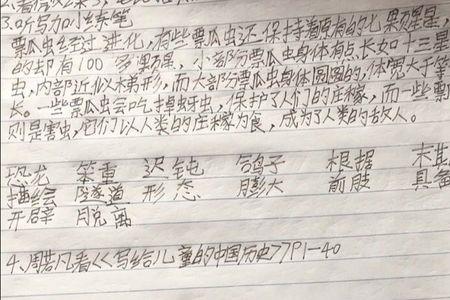 3.听写加小练笔
瓢虫经过进化,有些瓢虫还保持着原有的七颗星,
的却有100多颗星,小部分瓢虫身体有点长如十三星
虫,内部近似梯形,而大部分瓢虫身体圆圆的,体宽大于等
长。一些瓢虫会吃掉蚜虫,保护了人们的庄稼,而一些瓢
则是害虫,它们以人类的庄稼为食,成为了人类的敌人。
恐龙 笨重 迟钝 鸽子 根据
描绘 隧道 形态 膨大 前肢 具备
开辟 脱离
4、周若凡看《写给儿童的中国历史》P1-40